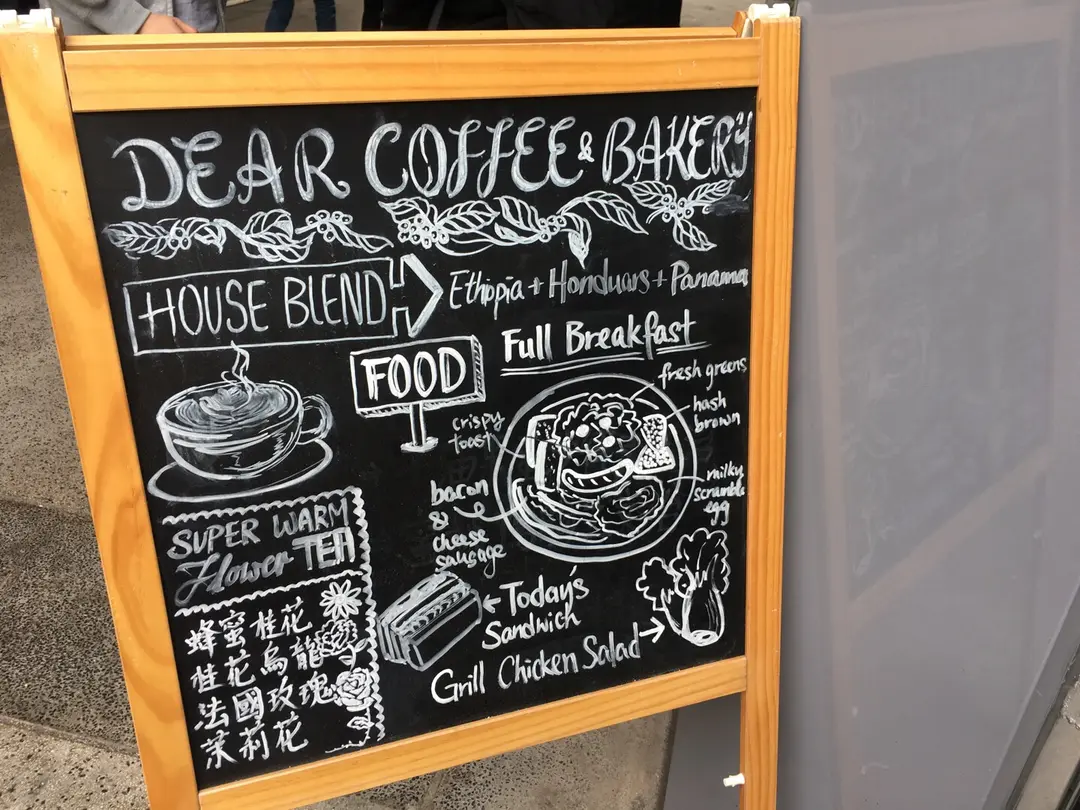 DEAR COFFEE & BAKERY
HOUSE BLEND
Ethiopia + Honduars + Panama
FOOD
Full Breakfast
fresh greens
hash
brown
crispy
toast
milky
scramble
egg
bacon
&
cheese
sausage
SUPER WARM
Flower TEA
蜂蜜桂花
桂花烏龍
法國玫瑰
茉莉花
Today's
Sandwich
Grill Chicken Salad